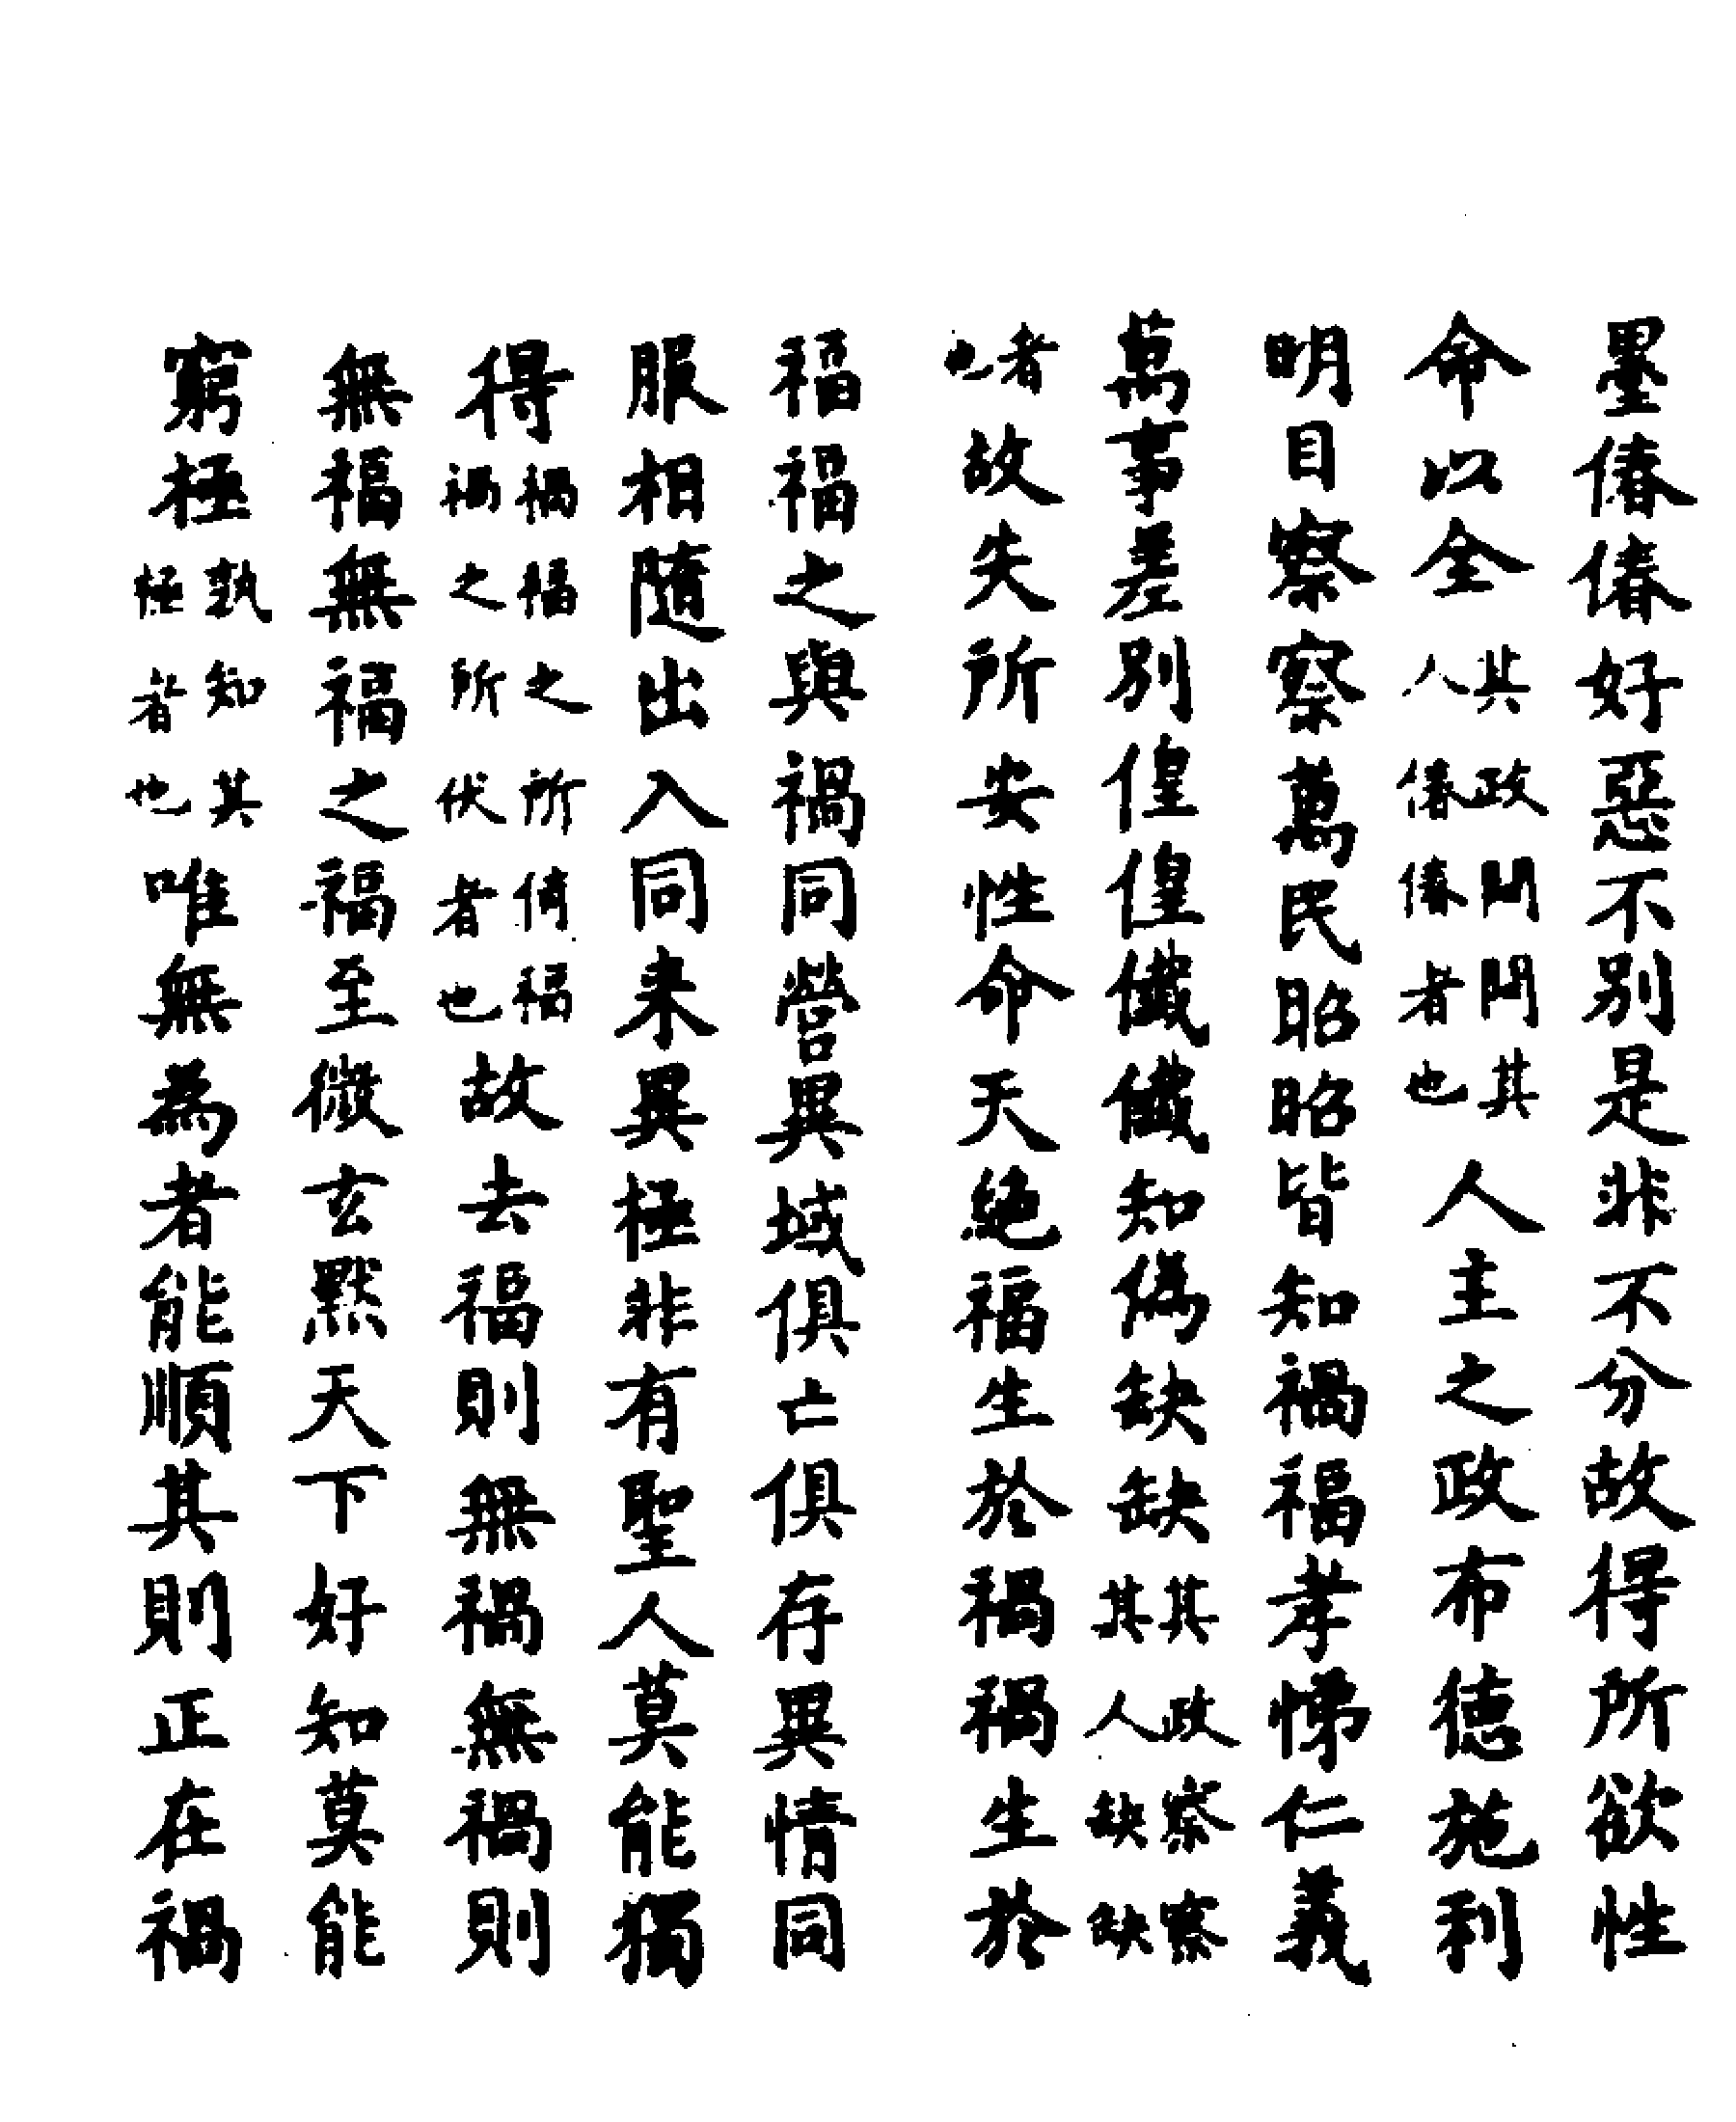 墨偆偆好惡不別是非不分故得所欲性
命以全其政悶悶其人偆偆者也人主之政布德施利
明目察察萬民昭昭皆知禍福孝悌仁義
萬事差別偟偟儀儀知偽缺缺其政察察其人缺缺
者也故失所安性命夭絕福生於禍禍生於
福福之與禍同營異域俱亡俱存異情同
服相隨出入同来異極非有聖人莫能獨
得禍福之所倚福禍之所伏者也故去福則無禍無禍則
無福無無福之福至微玄默天下好知莫能
窮極孰知其極者也唯無為者能順其則正在禍